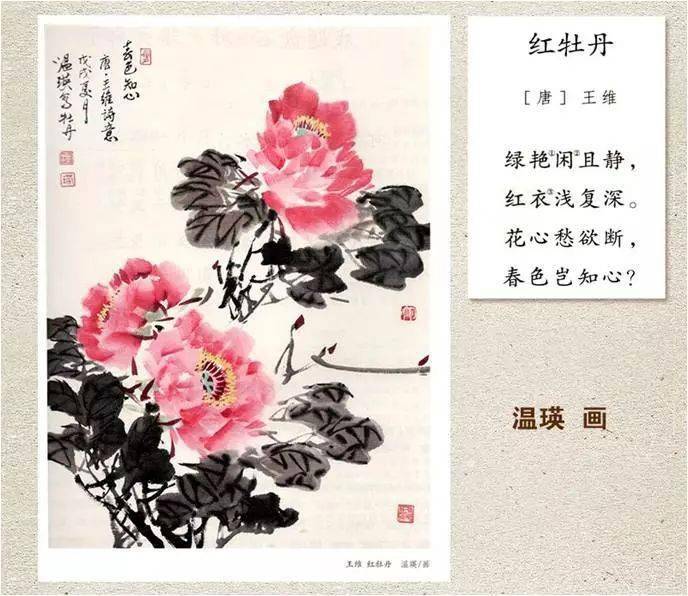 春色知心
唐·王维诗意
戊戌夏月
温瑛写牡丹
红牡丹
［唐］ 王维
绿艳①闲②且静，
红衣③浅复深。
花心愁欲断，
春色岂知心？
温瑛 画
王维 红牡丹 温瑛/画